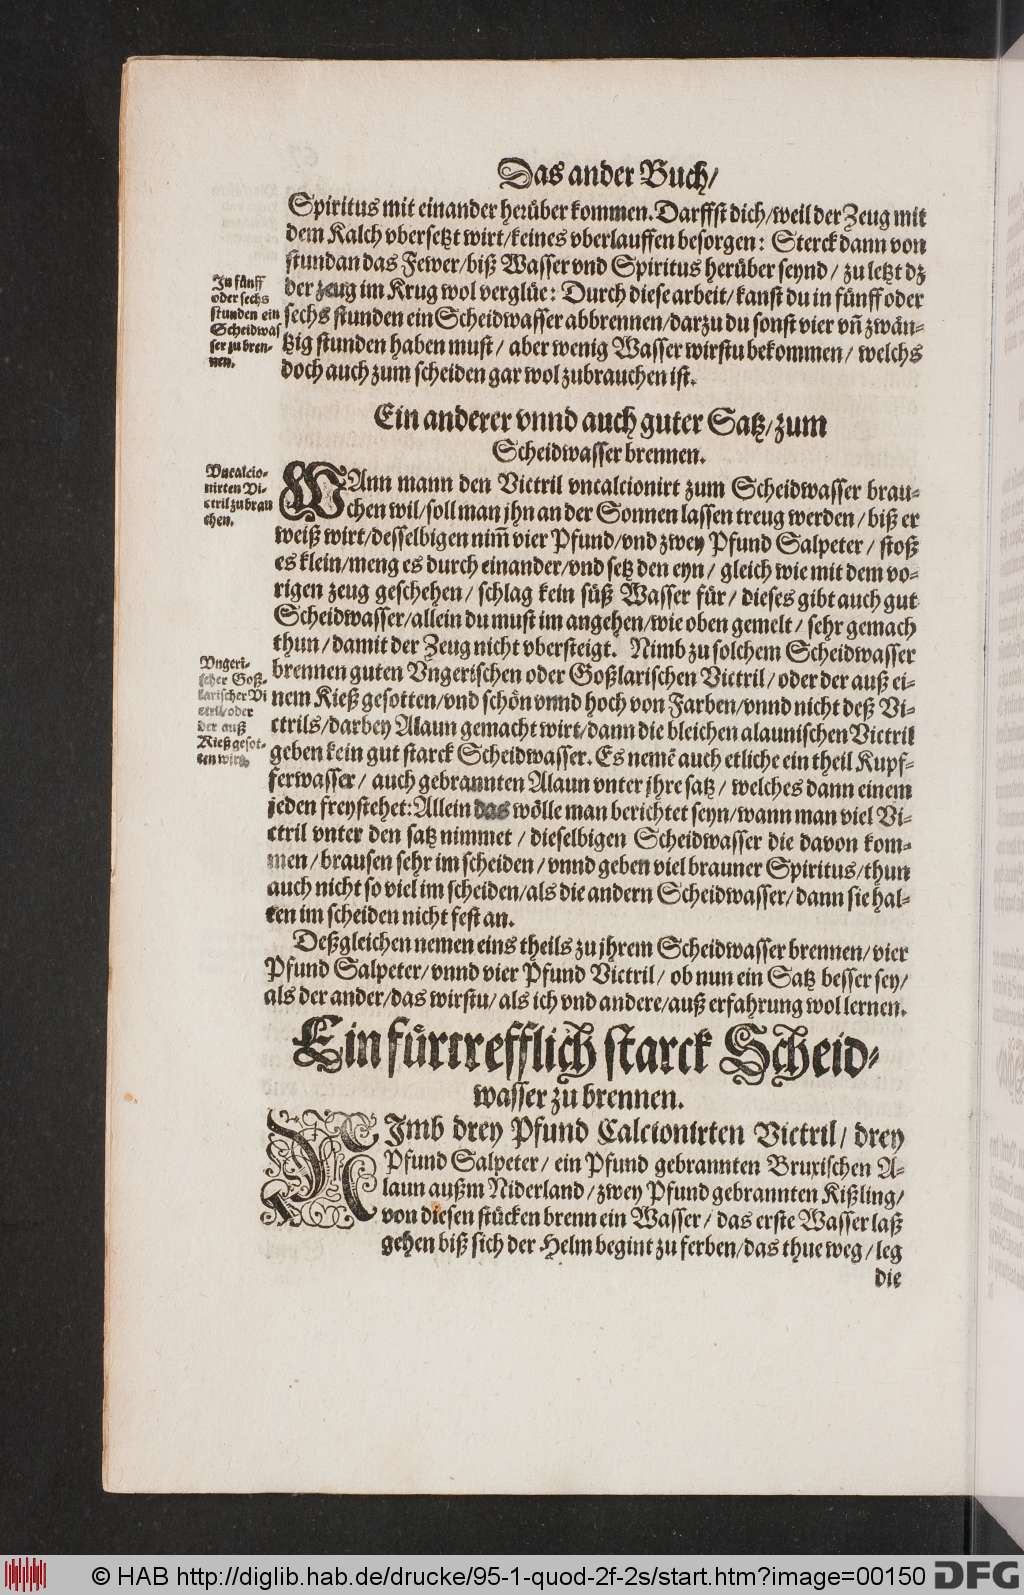 Das ander Buch/
Spiritus mit einander herüber kommen. Darffst dich/weil der Zeug mit
dem Kalch vbersetzt wirt/keines vberlauffen besorgen: Sterck dann von
stundan das Fewer/biß Wasser vnd Spiritus herüber seynd/ zu letzt dz
der zeug im Krug wol verglüe: Durch diese arbeit/kanst du in fünff oder
sechs stunden ein Scheidwasser abbrennen/darzu du sonst vier vñ zwän-
tzig stunden haben must/ aber wenig Wasser wirstu bekommen/ welchs
doch auch zum scheiden gar wol zubrauchen ist.
In fünff
oder sechs
stunden ein
Scheidwas
ser zu bren-
nen.
Ein anderer vnnd auch guter Satz/zum
Scheidwasser brennen.
Vncalcio-
nirten Vi-
ctril zu brau
chen.
WAnn mann den Victril vncalcionirt zum Scheidwasser brau-
chen wil/soll man jhn an der Sonnen lassen treug werden/ biß er
weiß wirt/desselbigen nim̃ vier Pfund/vnd zwey Pfund Salpeter/ stoß
es klein/meng es durch einander/vnd setz den eyn/ gleich wie mit dem vo-
rigen zeug geschehen/ schlag kein süß Wasser für/ dieses gibt auch gut
Scheidwasser/allein du must im angehen/wie oben gemelt/ sehr gemach
thun/damit der Zeug nicht vbersteigt. Nimb zu solchem Scheidwasser
brennen guten Vngerischen oder Goßlarischen Victril/ oder der auß ei-
nem Kieß gesotten/vnd schön vnnd hoch von Farben/vnnd nicht deß Vi-
ctrils/darbey Alaun gemacht wirt/dann die bleichen alaunischen Victril
geben kein gut starck Scheidwasser. Es nemẽ auch etliche ein theil Kupf-
ferwasser/ auch gebrannten Alaun vnter jhre satz/ welches dann einem
jeden freystehet: Allein das wölle man berichtet seyn/wann man viel Vi-
ctril vnter den satz nimmet/ dieselbigen Scheidwasser die davon kom-
men/brausen sehr im scheiden/vnnd geben viel brauner Spiritus/thun
auch nicht so viel im scheiden/als die andern Scheidwasser/dann sie hal-
ten im scheiden nicht fest an.
Vngeri-
scher Goß-
larischer Vi
ctril/oder
der auß
Kieß gesot-
ten wirt.
Deßgleichen nemen eins theils zu jhrem Scheidwasser brennen/vier
Pfund Salpeter/vnnd vier Pfund Victril/ ob nun ein Satz besser sey/
als der ander/das wirstu/als ich vnd andere/auß erfahrung wol lernen.
Ein fürtrefflich starck Scheid-
wasser zu brennen.
NImb drey Pfund Calcionirten Victril/ drey
Pfund Salpeter/ ein Pfund gebrannten Bruxischen A-
laun außm Niderland/zwey Pfund gebrannten Kißling/
von diesen stücken brenn ein Wasser/ das erste Wasser laß
gehen biß sich der Helm begint zu ferben/das thue weg/leg
die
© HAB http://diglib.hab.de/drucke/95-1-quod-2f-2s/start.htm?image=00150
DFG